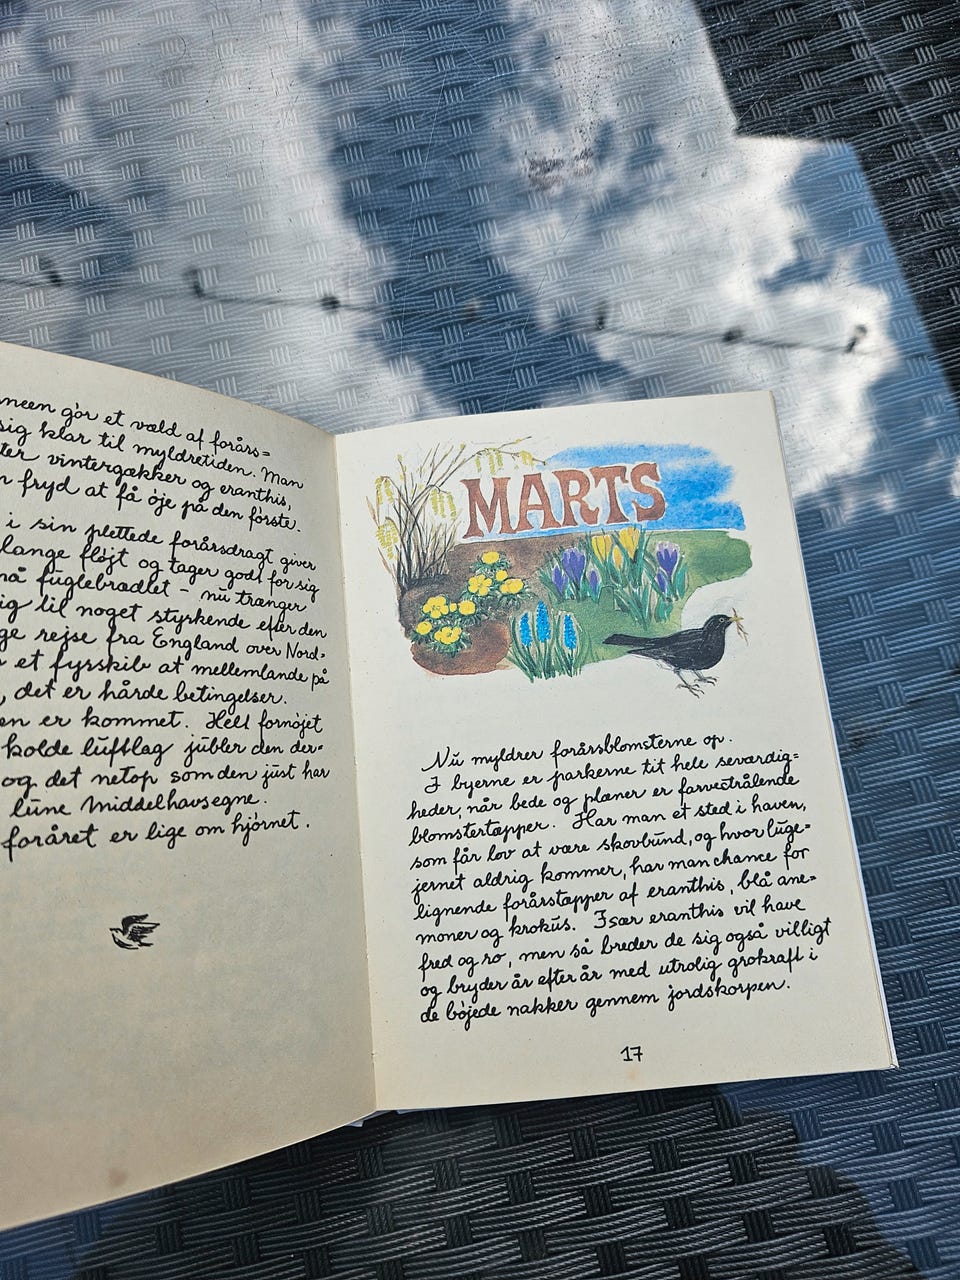 neen gör et væld af forårs=
sig klar til myldretiden. Man
ter vintergækker og eranthis,
n fryd at få öje på den förste.
i sin plettede forårsdragt giver
lange flöjt og tager godt for sig
nå fuglebrædtet - nu trænger
ig til noget styrkende efter den
ge rejse fra England over Nord=
et fyrskib at mellemlande på
, det er hårde betingelser.
en er kommet. Helt fornöjet
kolde luftlag jubler den der=
og det netop som den just har
lune Middelhavsegne.
foråret er lige om hjörnet.
MARTS
Nu myldrer forårsblomsterne op.
I byerne er parkerne tit hele seværdig=
heder, når bede og plæner er farvestrålende
blomstertæpper. Har man et sted i haven,
som får lov at være skovbund, og hvor luge=
jernet aldrig kommer, har man chance for
lignende forårstæpper af eranthis, blå ane=
moner og krokus. Især eranthis vil have
fred og ro, men så breder de sig også villigt
og bryder år efter år med utrolig grokraft i
de böjede nakker gennem jordskorpen.
17